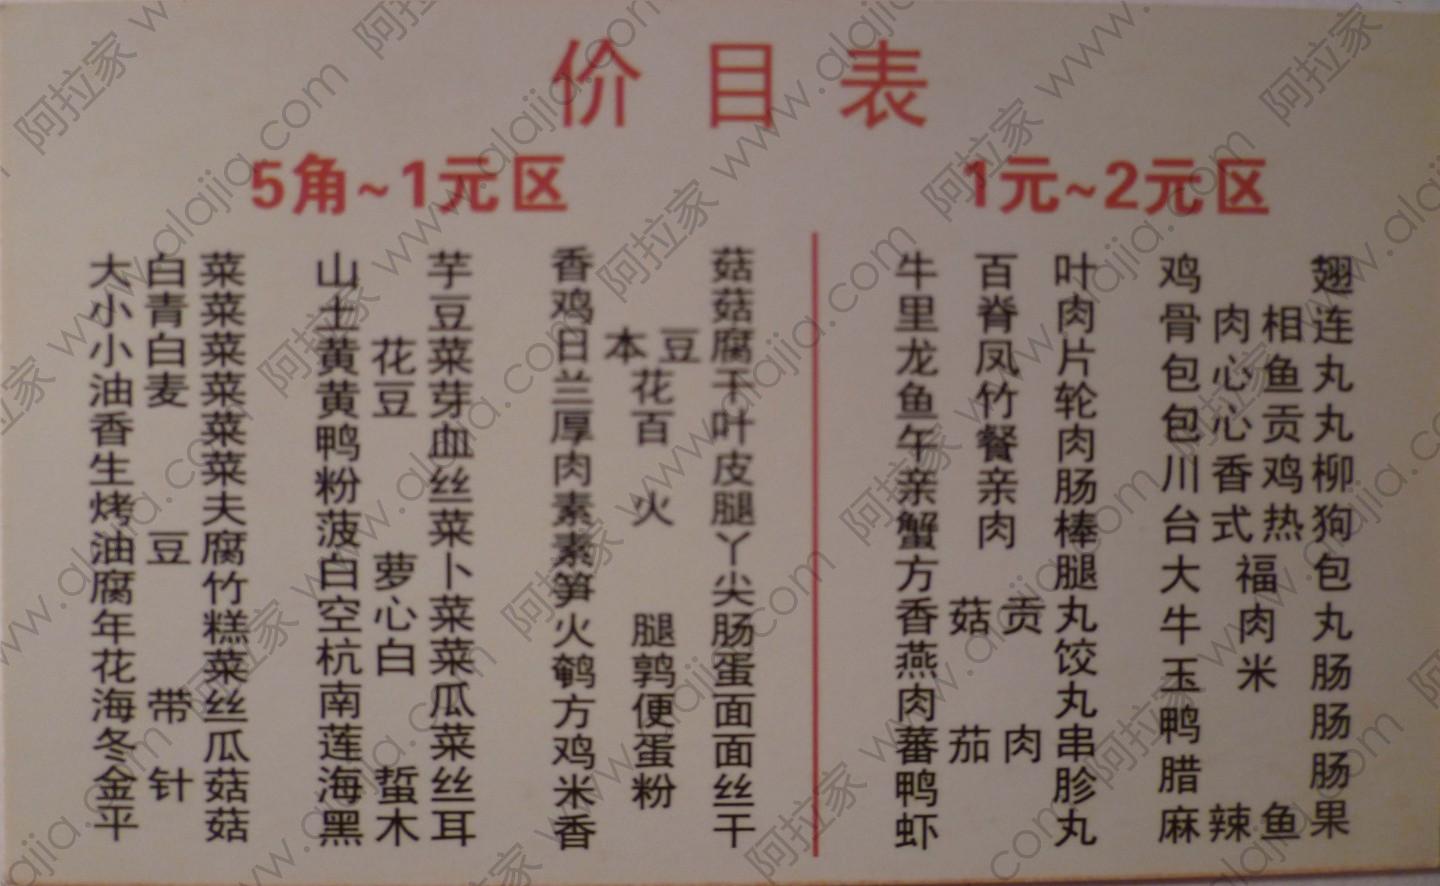 价目表
5角~1元区
大白菜
小青菜
小白菜
油麦菜
香菜
生菜
烤夫
油豆腐
腐竹
年糕
花菜
海带丝
冬瓜
金针菇
平菇
山芋
土豆
黄花菜
黄豆芽
鸭血
粉丝
菠菜
白萝卜
空心菜
杭白菜
南瓜
莲菜
海蜇丝
黑木耳
香菇
鸡菇
日本豆腐
兰花干
厚百叶
肉皮
素火腿
素丫
笋尖
火腿肠
鹌鹑蛋
方便面
鸡蛋面
米粉丝
香干
1元~2元区
牛百叶
里脊肉
龙凤片
鱼竹轮
午餐肉
亲亲肠
蟹肉棒
方腿
香菇贡丸
燕饺
肉丸
蕃茄肉串
鸭胗
虾丸
鸡翅
骨肉相连
包心鱼丸
包心贡丸
川香鸡柳
台式热狗
大福包
牛肉丸
玉米肠
鸭肠
腊肠
麻辣鱼果
阿拉家 www.alajia.com